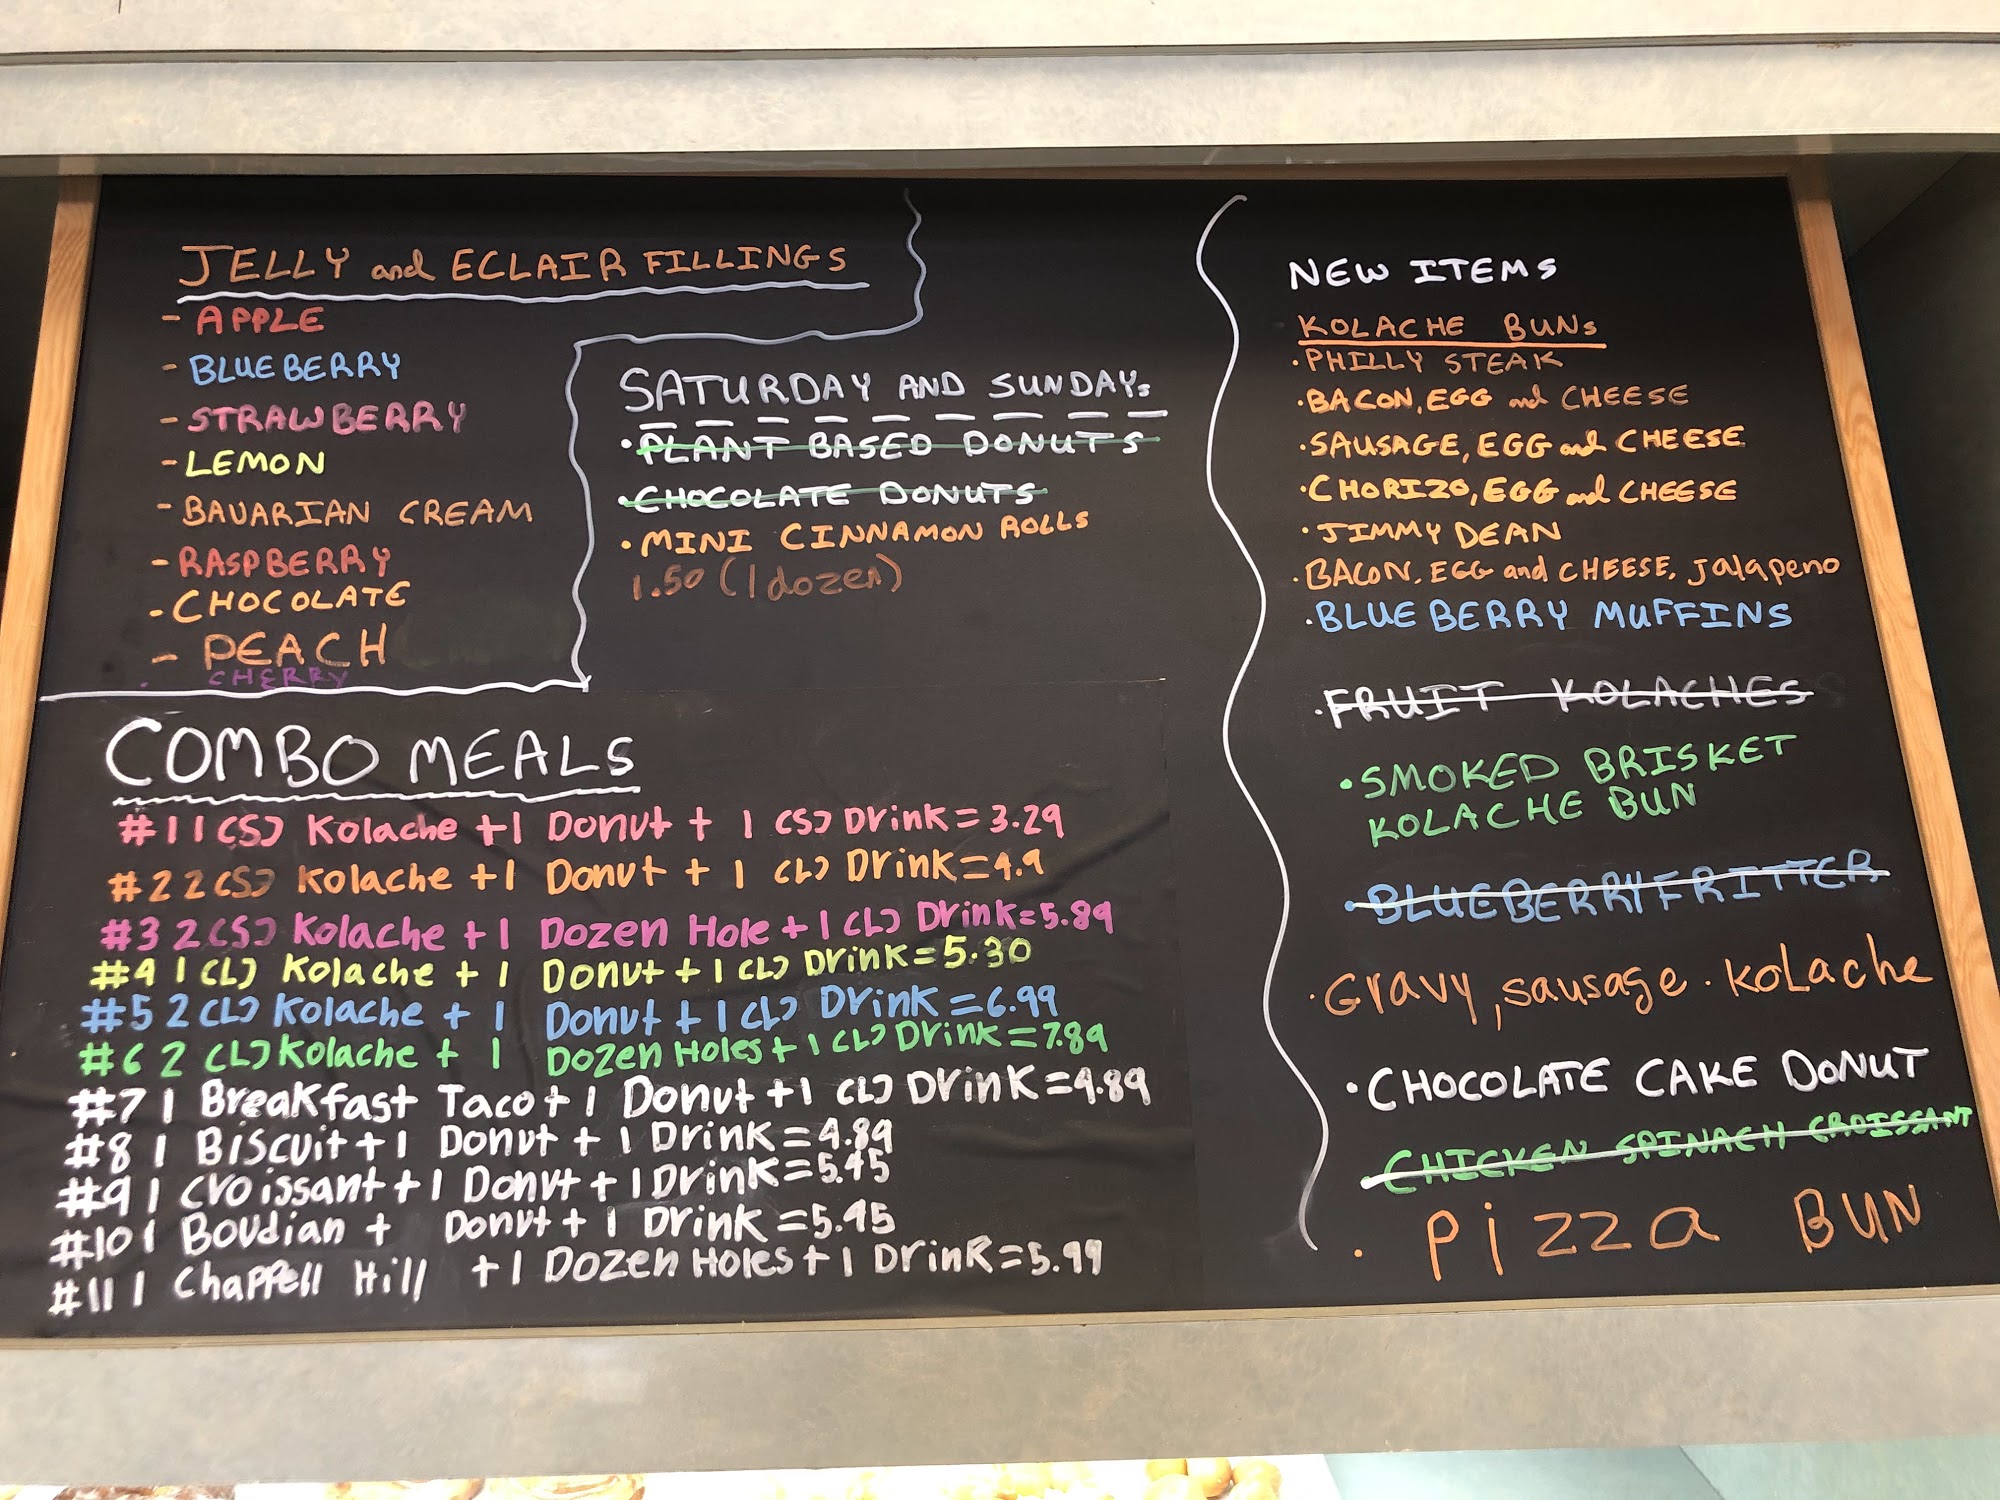 JELLY and ECLAIR FILLINGS
- APPLE
- BLUEBERRY
- STRAWBERRY
- LEMON
- BAVARIAN CREAM
- RASPBERRY
- CHOCOLATE
- PEACH
CHERRY
SATURDAY AND SUNDAYs
• PLANT BASED DONUTS
• CHOCOLATE DONUTS
• MINI CINNAMON ROLLS
1.50 (1 dozen)
COMBO MEALS
#1 1 (S) Kolache + 1 Donut + 1 (S) Drink = 3.29
#2 2 (S) Kolache + 1 Donut + 1 (L) Drink = 4.9
#3 2 (S) Kolache + 1 Dozen Hole + 1 (L) Drink = 5.89
#4 1 (L) Kolache + 1 Donut + 1 (L) Drink = 5.30
#5 2 (L) Kolache + 1 Donut + 1 (L) Drink = 6.99
#6 2 (L) Kolache + 1 Dozen Holes + 1 (L) Drink = 7.89
#7 1 Breakfast Taco + 1 Donut + 1 (L) Drink = 4.89
#8 1 Biscuit + 1 Donut + 1 Drink = 4.89
#9 1 Croissant + 1 Donut + 1 Drink = 5.45
#10 1 Boudian + Donut + 1 Drink = 5.45
#11 1 Chappell Hill + 1 Dozen Holes + 1 Drink = 5.99
NEW ITEMS
KOLACHE BUNs
• PHILLY STEAK
• BACON, EGG and CHEESE
• SAUSAGE, EGG and CHEESE
• CHORIZO, EGG and CHEESE
• JIMMY DEAN
• BACON, EGG and CHEESE, Jalapeno
• BLUEBERRY MUFFINS
• FRUIT KOLACHES
• SMOKED BRISKET
KOLACHE BUN
• BLUEBERRY FRITTER
• Gravy, sausage . KoLache
• CHOCOLATE CAKE DONUT
• CHICKEN SPINACH CROISSANT
• Pizza BUN